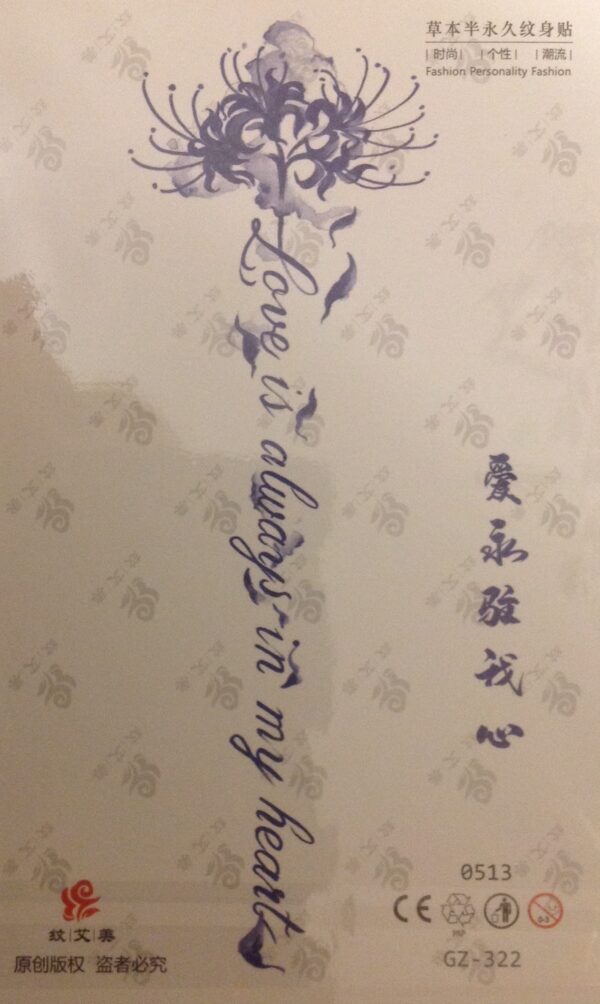 草本半永久纹身贴
时尚 | 个性 | 潮流
Fashion Personality Fashion
Love is always in my heart
爱永驻我心
0513
CE
0-3
GZ-322
纹|艾|美
原创版权 盗者必究